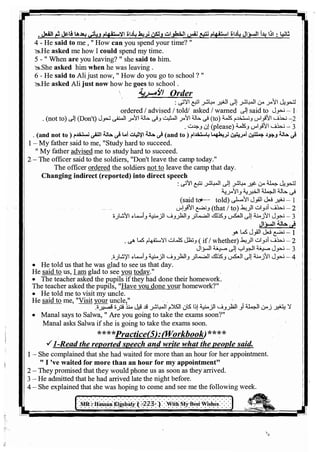 ثانيا : إذا بدأ السؤال بأداة استفهام نتبع نفس الخطوات ولكن نربط بأداة الاستفهام ويأتى بعدها فاعل ثم الفعل.
4 - He said to me , " How can you spend your time? "
He asked me how I could spend my time.
5 - " When are you leaving? " she said to him.
She asked him when he was leaving .
6 - He said to Ali just now, " How do you go to school ? "
He asked Ali just now how he goes to school .
الأمرية Order
لتحويل الأمر من المباشر إلى الغير مباشر نتبع الآتى :
1 – نحول said to إلى ordered / advised / told/ asked / warned
2- نحذف الأقواس ونستخدم كلمة (to) فى حالة الأمر المثبت وفى حالة الأمر المنفى نحول (Don't) إلى (not to) .
3 - نحذف الأقواس وكلمة (please) إن وجدت .
فى حالة وجود جملتين أمريتين نربطهما باستخدام ( and to ) فى حالة الإثبات أما فى حالة النفى نستخدم ( and not to ) .
1 – My father said to me, "Study hard to succeed.
" My father advised me to study hard to succeed.
2 – The officer said to the soldiers, "Don't leave the camp today."
The officer ordered the soldiers not to leave the camp that day.
Changing indirect (reported) into direct speech
لتحويل جملة من غير مباشر إلى المباشر نتبع الآتى :
فى حالة الجملة الخبرية والأمرية
1 – نغير فعل القول الأصلى (said to told)
2 – نحذف أدوات الربط (that / to) ونضع الأقواس
3 – نحول الأزمنة إلى العكس وكذلك الضمائر والظروف الزمنية وأسماء الأشارة
فى حالة السؤال
1 – نضع فعل القول كما هو
2 – نحذف أدوات الربط ( if / whether ) وتظل كلمات الاستفهام كما هى .
3 – نحول صيغة الجواب إلى صيغة السؤال
4 – نحول الأزمنة إلى العكس وكذلك الضمائر والظروف الزمنية وأسماء الإشارة.
• He told us that he was glad to see us that day.
He said to us, I am glad to see you today."
• The teacher asked the pupils if they had done their homework.
The teacher asked the pupils, "Have you done your homework?"
• He told me to visit my uncle.
He said to me, "Visit your uncle."
لا يتغير زمن الجملة أو الظروف الزمنية إذا كان الكلام المباشر قد قيل منذ فترة قصيرة
• Manal says to Salwa, " Are you going to take the exams soon?"
Manal asks Salwa if she is going to take the exams soon.
****Practice(5):(Workbook)****
✓ 1-Read the reported speech and write what the people said.
1 – She complained that she had waited for more than an hour for her appointment.
" I 've waited for more than an hour for my appointment"
2 – They promised that they would phone us as soon as they arrived.
3 – He admitted that he had arrived late the night before.
4 – She explained that she was hoping to come and see me the following week.
MR : Hassan Elgebaly ( -223- ) With My Best Wishes